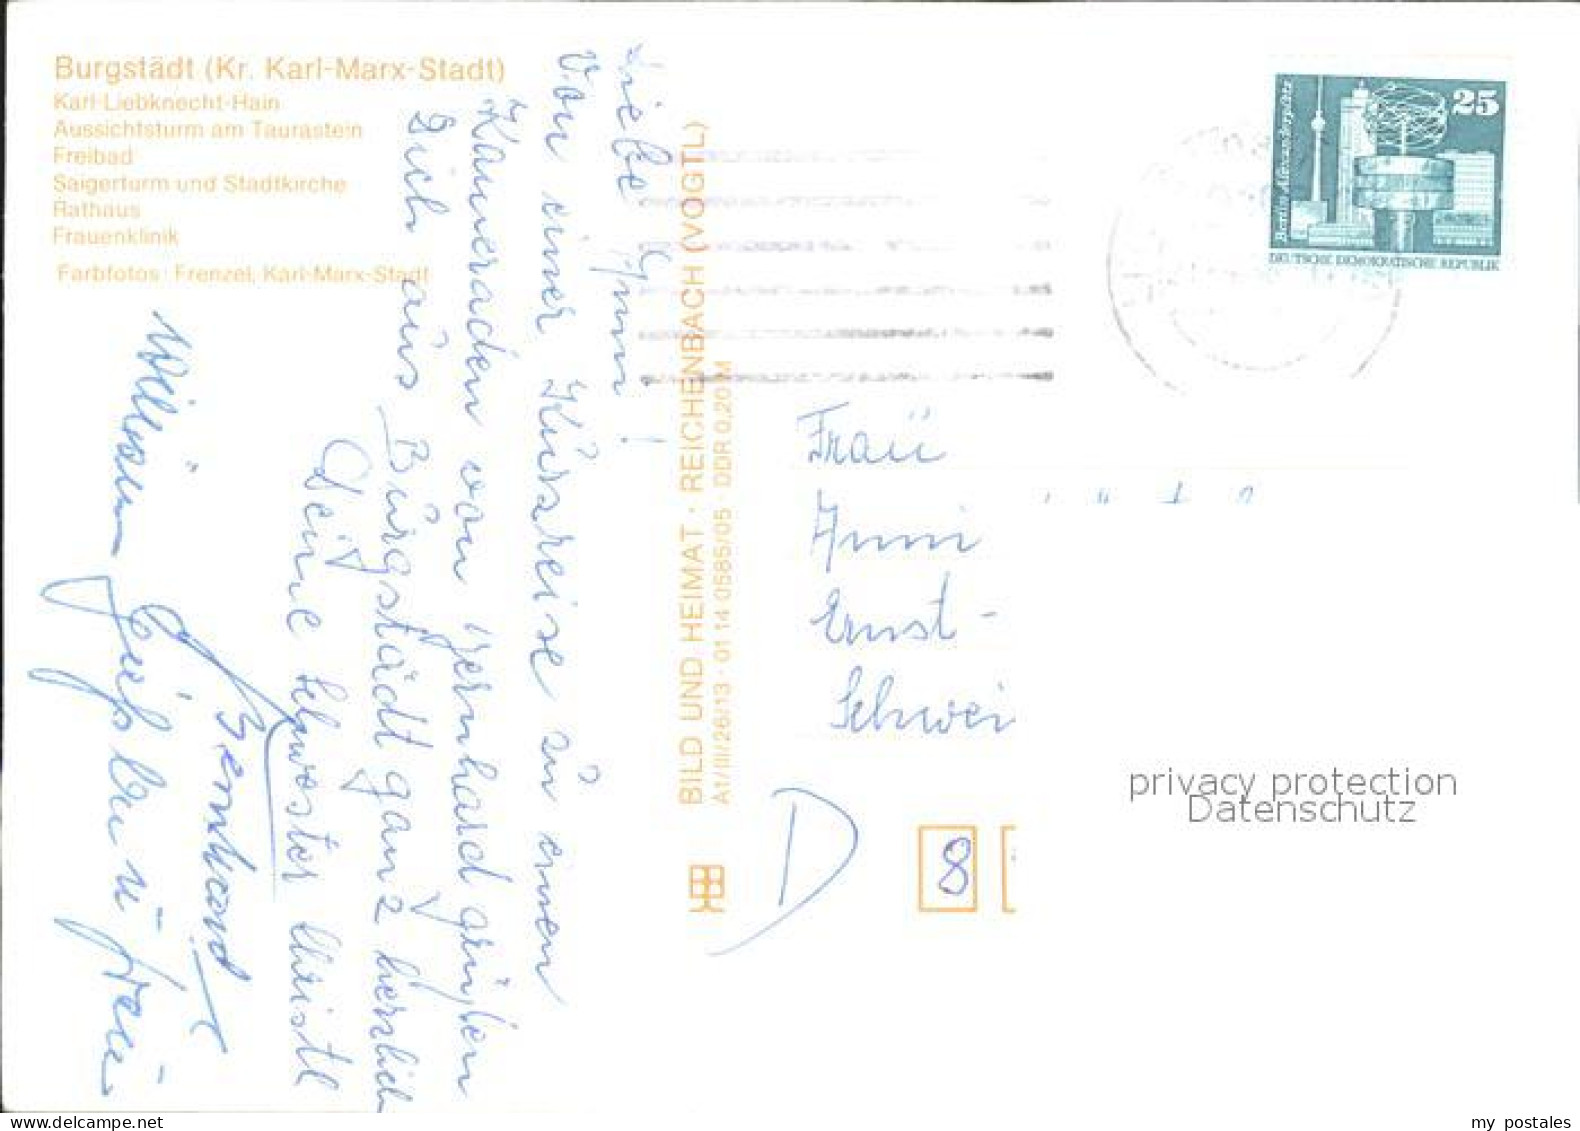 Burgstädt (Kr. Karl-Marx-Stadt)
Karl-Liebknecht-Hain
Aussichtsturm am Taurastein
Freibad
Saigerturm und Stadtkirche
Rathaus
Frauenklinik
Farbfotos: Frenzel, Karl-Marx-Stadt
Liebe Anni!
Von einer Kurzreise zu einem
Kameraden von Bernhard grüßen
Dich aus Burgstädt ganz herzlich
Deine Schwester Christl
Bernhard
u. Frau
BILD UND HEIMAT · REICHENBACH (VOGTL)
A1/III/26/13 · 01 14 0585/05 · DDR 0,20 M
25
Berlin, Alexanderplatz
DEUTSCHE DEMOKRATISCHE REPUBLIK
Frau
Anni
Ernst-
Schwei
D
8
privacy protection
Datenschutz
my postales